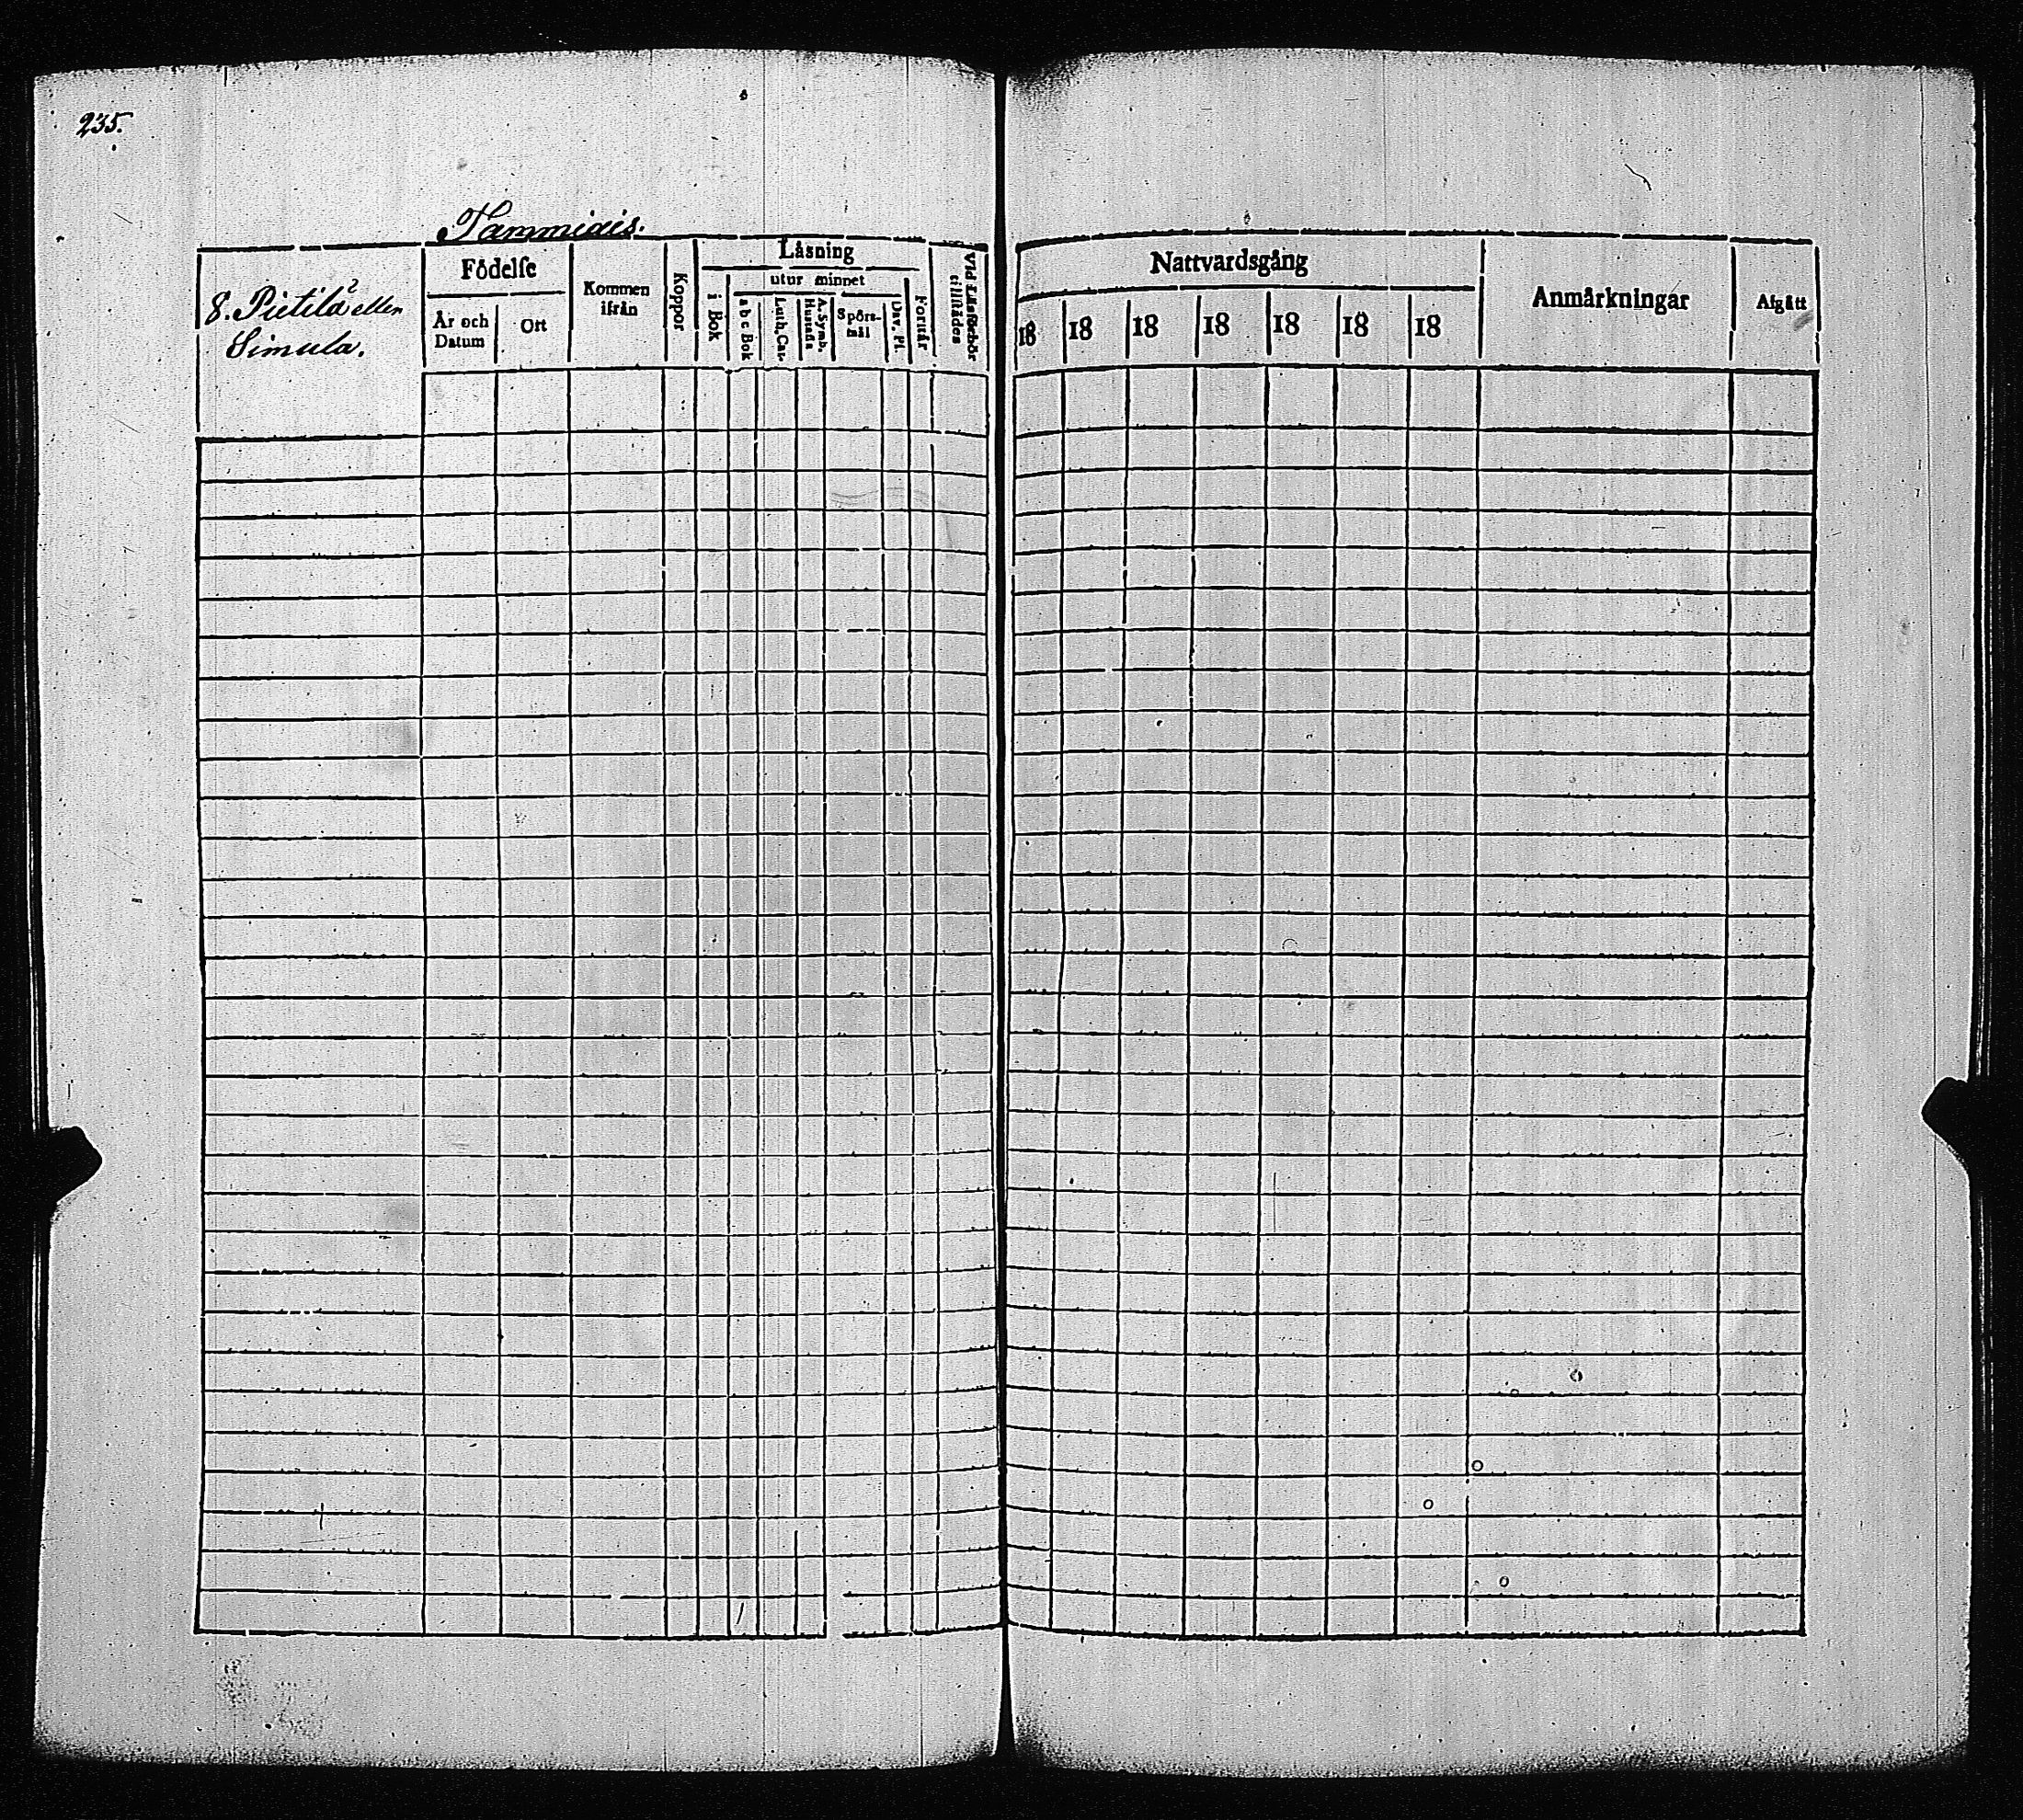 235.
Tammiais.
8. Pietilä eller
Simula.
Födelse
År och
Datum
Ort
Kommen
ifrån
Koppor
Läsning
i Bok
utur minnet
a b c Bok
Luth. Cat.
A. Symb.
Hustafla
Spörs-
mål
Dav. Ps.
Förstår
Vid Läsförhör
tillstädes
Nattvardsgång
18 18 18 18 18 18 18
Anmärkningar
Afgått